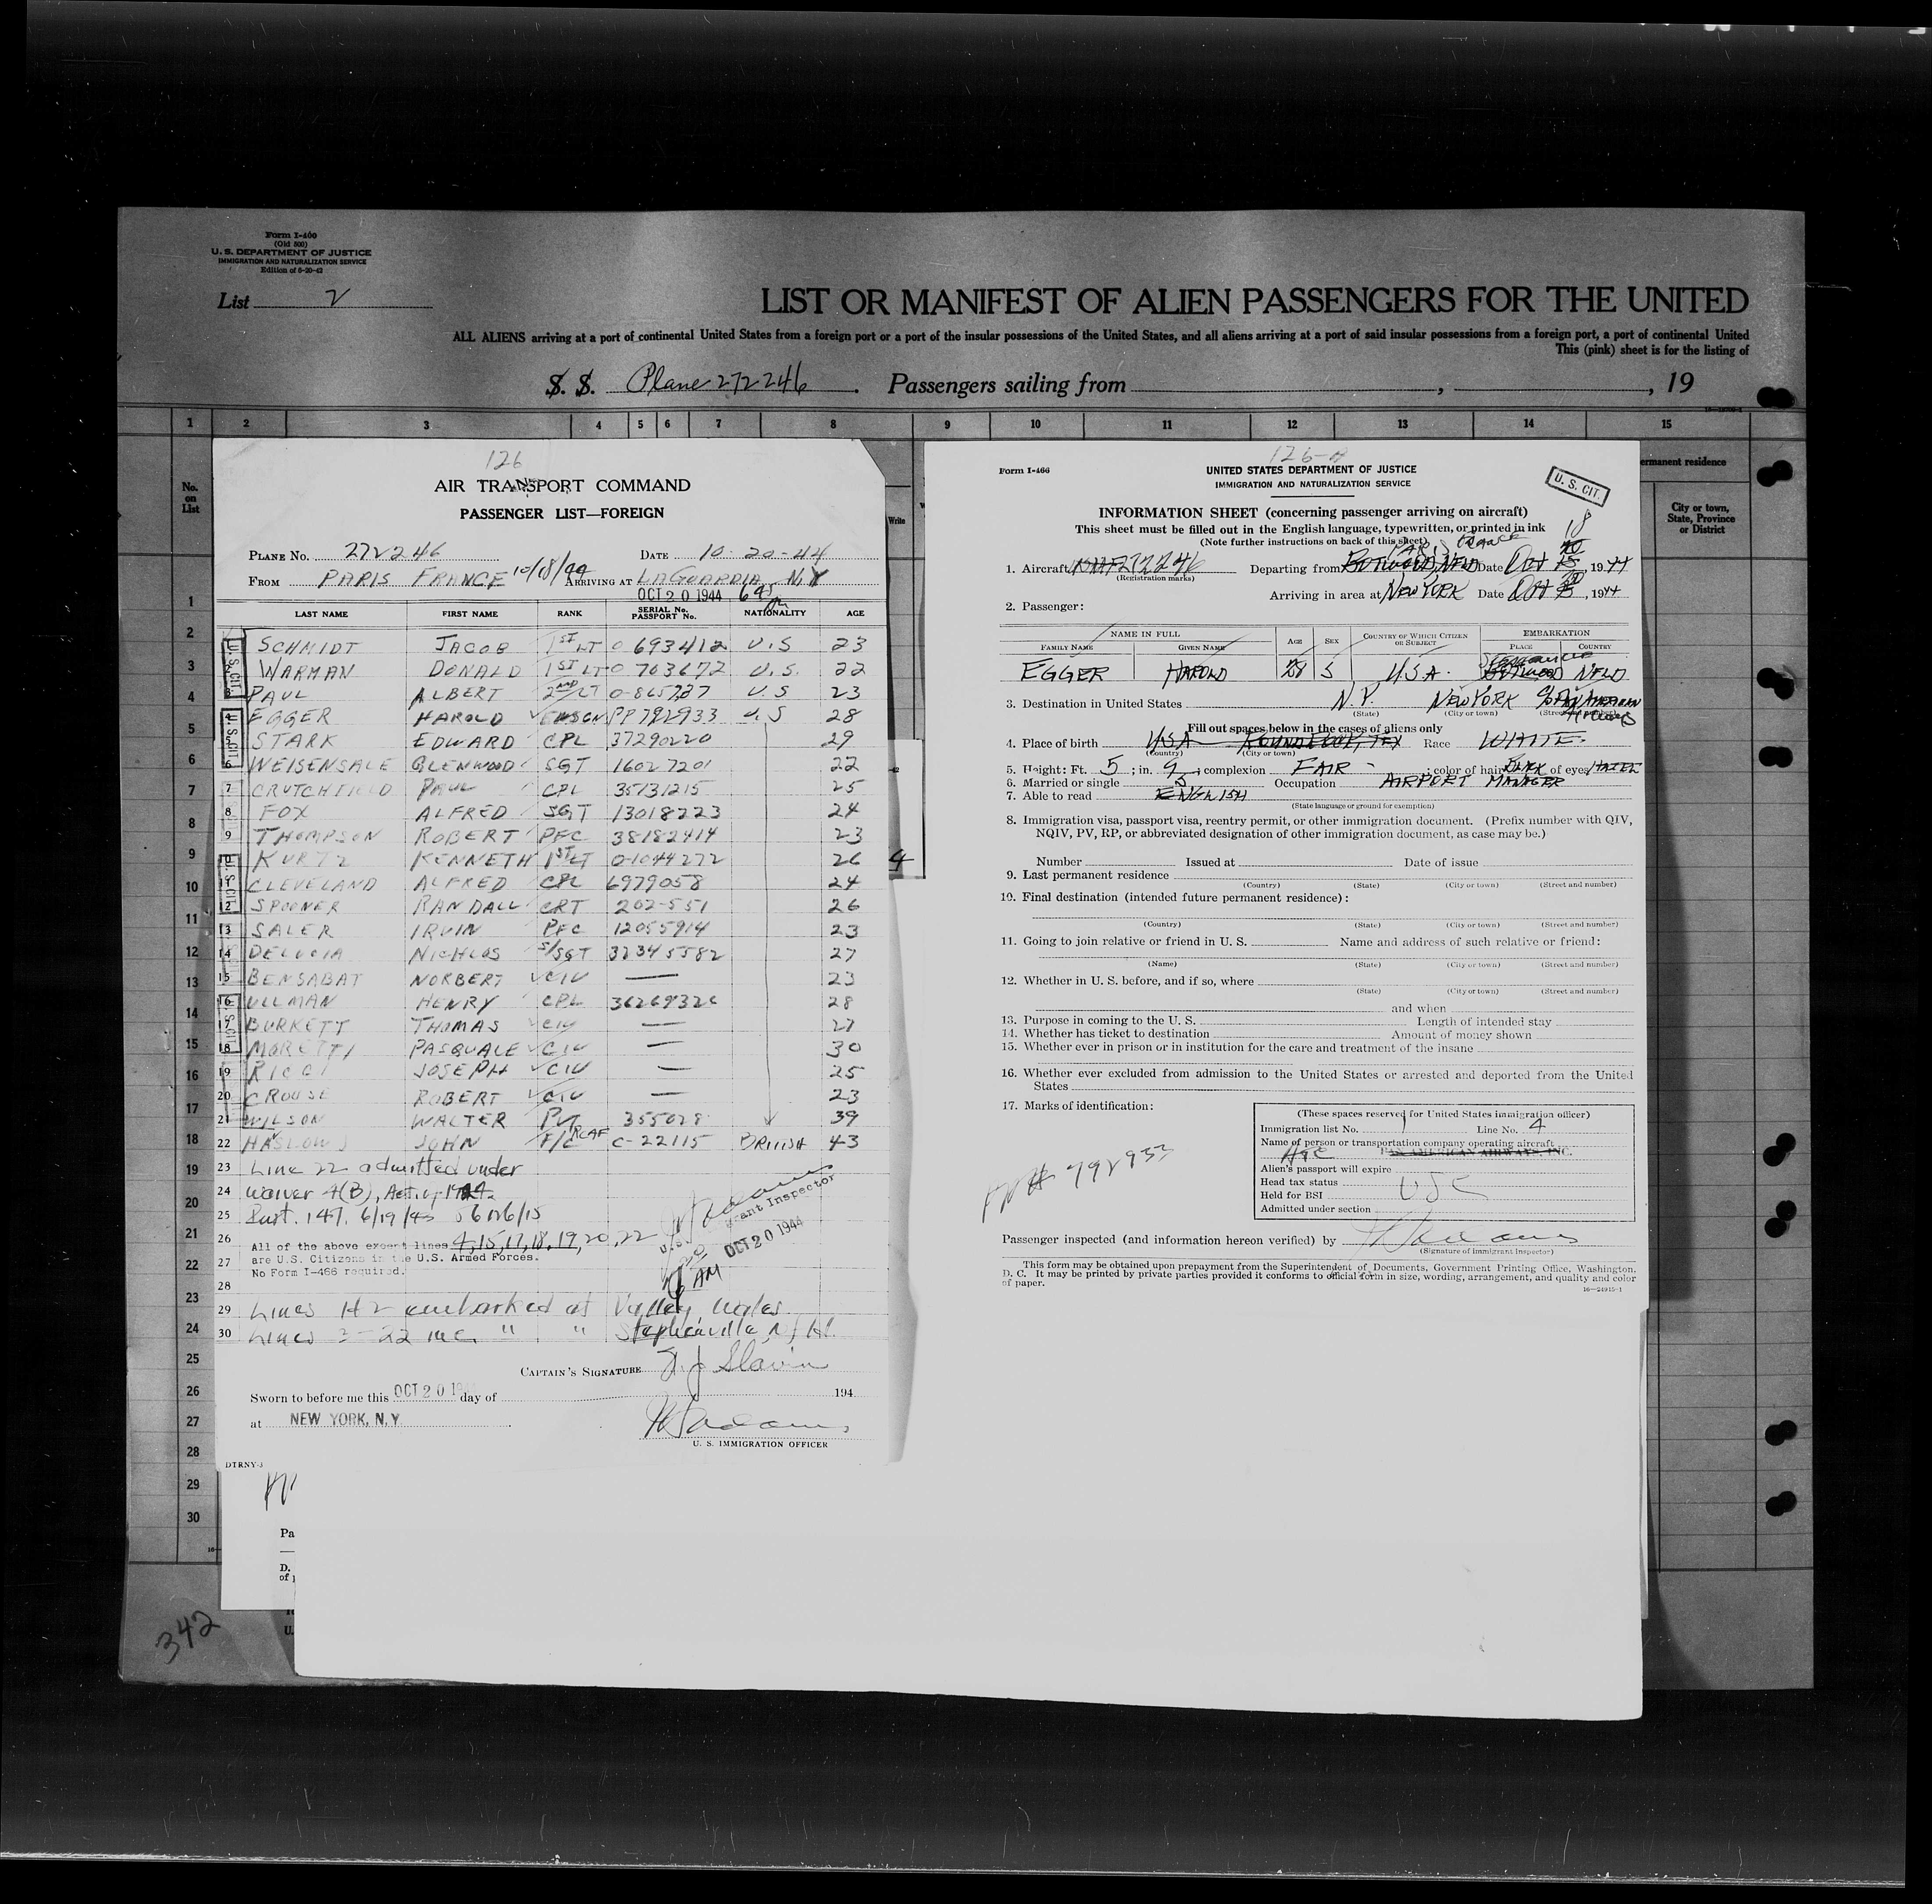 Form I-466
(Old 500)
U. S. DEPARTMENT OF JUSTICE
IMMIGRATION AND NATURALIZATION SERVICE
Edition of 6-20-42
List 2
LIST OR MANIFEST OF ALIEN PASSENGERS FOR THE UNITED
ALL ALIENS arriving at a port of continental United States from a foreign port or a port of the insular possessions of the United States, and all aliens arriving at a port of said insular possessions from a foreign port, a port of continental United
This (pink) sheet is for the listing of
S. S. Plane 272246. Passengers sailing from , , 19
1 2 3 4 5 6 7 8 9 10 11 12 13 14 15
No. on List
ermanent residence
City or town, State, Province or District
126
AIR TRANSPORT COMMAND
PASSENGER LIST—FOREIGN
PLANE No. 272246 DATE 10-20-44
FROM PARIS FRANCE 10/18/44 ARRIVING AT LAGUARDIA, N.Y
OCT 20 1944
LAST NAME FIRST NAME RANK SERIAL No. PASSPORT No. NATIONALITY AGE
SCHMIDT JACOB 1ST LT O 693412 U.S 23
WARMAN DONALD 1ST LT O 703672 U.S. 22
PAUL ALBERT 2ND LT O-865737 U.S 23
EGGER HAROLD ENSGN PP792933 U.S 28
STARK EDWARD CPL 37290220 29
WEISENSALE GLENWOOD SGT 16027201 22
7 CRUTCHFIELD PAUL CPL 35131215 25
8 FOX ALFRED SGT 13018223 24
9 THOMPSON ROBERT PFC 38182414 23
KURTZ KENNETH 1ST LT O-1044272 26
11 CLEVELAND ALFRED CPL 6979058 24
12 SPOONER RANDALL CRT 202-551 26
13 SALER IRVIN PFC 12055914 23
14 DELUCIA NICHLOS S/SGT 32345582 27
15 BENSABAT NORBERT CIV — 23
16 ULLMAN HENRY CPL 36269326 28
17 BURKETT THOMAS CIV — 27
18 MORETTI PASQUALE CIV — 30
19 RICCI JOSEPH CIV — 25
20 CROUSE ROBERT CIV — 23
21 WILSON WALTER PVT 355028 39
22 HASLOW JOHN F/C RCAF C-22115 BRITISH 43
23 Line 22 admitted under
24 waiver 4(B), Act of 1924
25 Inst. 147, 6/19/43 56126/15
26 All of the above except lines 4,15,17,18,19,20,22
27 are U.S. Citizens in the U.S. Armed Forces.
No Form I-466 required.
28
29 Lines 1+2 embarked at Valley, Wales
30 Lines 3-22 inc. " " Stephenville, Nfld.
grant Inspector
OCT 20 1944
AM
CAPTAIN'S SIGNATURE Slavin
Sworn to before me this OCT 20 19 day of 194
at NEW YORK, N.Y
U. S. IMMIGRATION OFFICER
DTRNY-3
342
126-A
Form I-466
UNITED STATES DEPARTMENT OF JUSTICE
IMMIGRATION AND NATURALIZATION SERVICE
U. S. CIT.
INFORMATION SHEET (concerning passenger arriving on aircraft)
This sheet must be filled out in the English language, typewritten, or printed in ink
(Note further instructions on back of this sheet)
1. Aircraft 272246 Departing from PARIS France BOTWOOD, NFLD Date Oct 18, 1944
(Registration marks)
Arriving in area at NEW YORK Date Oct 20, 1944
2. Passenger:
NAME IN FULL AGE SEX COUNTRY OF WHICH CITIZEN OR SUBJECT EMBARKATION
FAMILY NAME GIVEN NAME PLACE COUNTRY
EGGER HAROLD 28 S U.S.A. BOTWOOD NFLD
3. Destination in United States N.Y. NEW YORK % PAN AMERICAN AIRWAYS
(State) (City or town) (Street and number)
Fill out spaces below in the cases of aliens only
4. Place of birth USA ROUND ROCK, TEX Race WHITE
(Country) (City or town)
5. Height: Ft. 5; in. 9; complexion FAIR; color of hair DARK of eyes HAZEL
6. Married or single S Occupation AIRPORT MANAGER
7. Able to read ENGLISH
(State language or ground for exemption)
8. Immigration visa, passport visa, reentry permit, or other immigration document. (Prefix number with QIV,
NQIV, PV, RP, or abbreviated designation of other immigration document, as case may be.)
Number Issued at Date of issue
9. Last permanent residence
(Country) (State) (City or town) (Street and number)
10. Final destination (intended future permanent residence):
(Country) (State) (City or town) (Street and number)
11. Going to join relative or friend in U. S. Name and address of such relative or friend:
(Name) (State) (City or town) (Street and number)
12. Whether in U. S. before, and if so, where
(State) (City or town) (Street and number)
and when
13. Purpose in coming to the U. S. Length of intended stay
14. Whether has ticket to destination Amount of money shown
15. Whether ever in prison or in institution for the care and treatment of the insane
16. Whether ever excluded from admission to the United States or arrested and deported from the United
States
17. Marks of identification:
(These spaces reserved for United States immigration officer)
Immigration list No. 1 Line No. 4
Name of person or transportation company operating aircraft
ATC PAN AMERICAN AIRWAYS, INC.
Alien's passport will expire
Head tax status USC
Held for BSI
Admitted under section
792933
Passenger inspected (and information hereon verified) by
(Signature of immigrant inspector)
This form may be obtained upon prepayment from the Superintendent of Documents, Government Printing Office, Washington,
D. C. It may be printed by private parties provided it conforms to official form in size, wording, arrangement, and quality and color
of paper.
16—24915-1